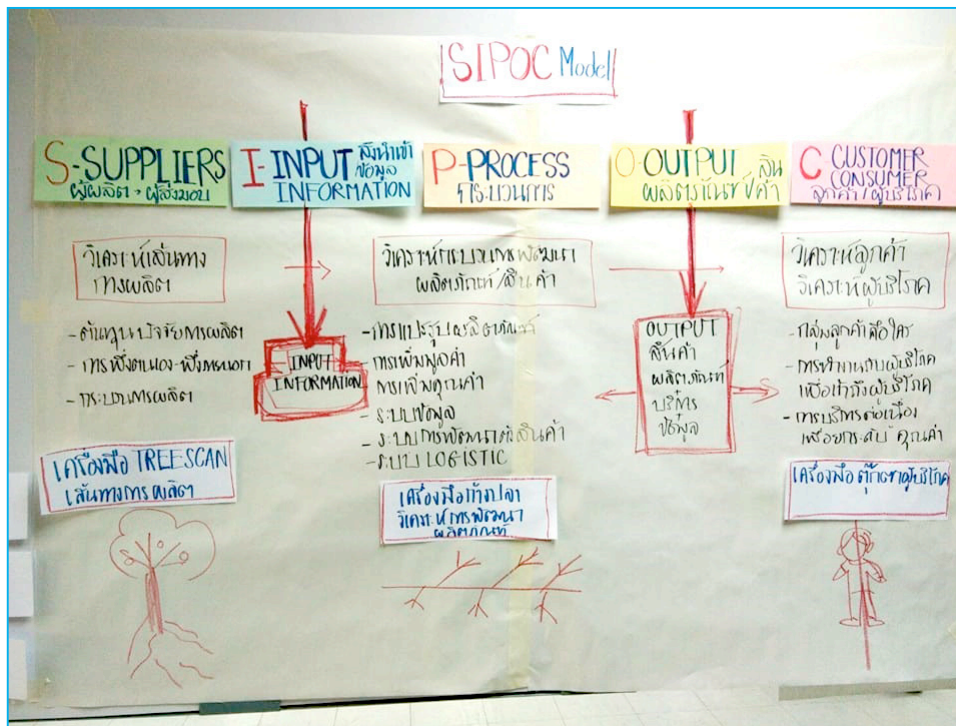 SIPOC Model
S-SUPPLIERS
ผู้ผลิต → ผู้ส่งมอบ
I-INPUT สิ่งนำเข้า
ข้อมูล
INFORMATION
P-PROCESS
กระบวนการ
O-OUTPUT สิน
ผลิตภัณฑ์/ค้า
C CUSTOMER
CONSUMER
ลูกค้า/ผู้บริโภค
วิเคราะห์เส้นทาง
การผลิต
- ต้นทุนปัจจัยการผลิต
- การพึ่งตนเอง-พึ่งภายนอก
- กระบวนการผลิต
เครื่องมือ TREESCAN
เส้นทางการผลิต
INPUT
INFORMATION
วิเคราะห์กระบวนการพัฒนา
ผลิตภัณฑ์/สินค้า
- การแปรรูปผลิตภัณฑ์
- การเพิ่มมูลค่า
การเพิ่มคุณค่า
- ระบบข้อมูล
- ระบบการพัฒนาตัวสินค้า
- ระบบ LOGISTIC
เครื่องมือก้างปลา
วิเคราะห์การพัฒนา
ผลิตภัณฑ์
OUTPUT
สินค้า
ผลิตภัณฑ์
บริการ
ข้อมูล
วิเคราะห์ลูกค้า
วิเคราะห์ผู้บริโภค
- กลุ่มลูกค้าคือใคร
- การทำงานกับผู้บริโภค
เพื่อเข้าถึงผู้บริโภค
- การบริการต่อเนื่อง
เพื่อยกระดับ คุณค่า
เครื่องมือตุ๊กตาผู้บริโภค